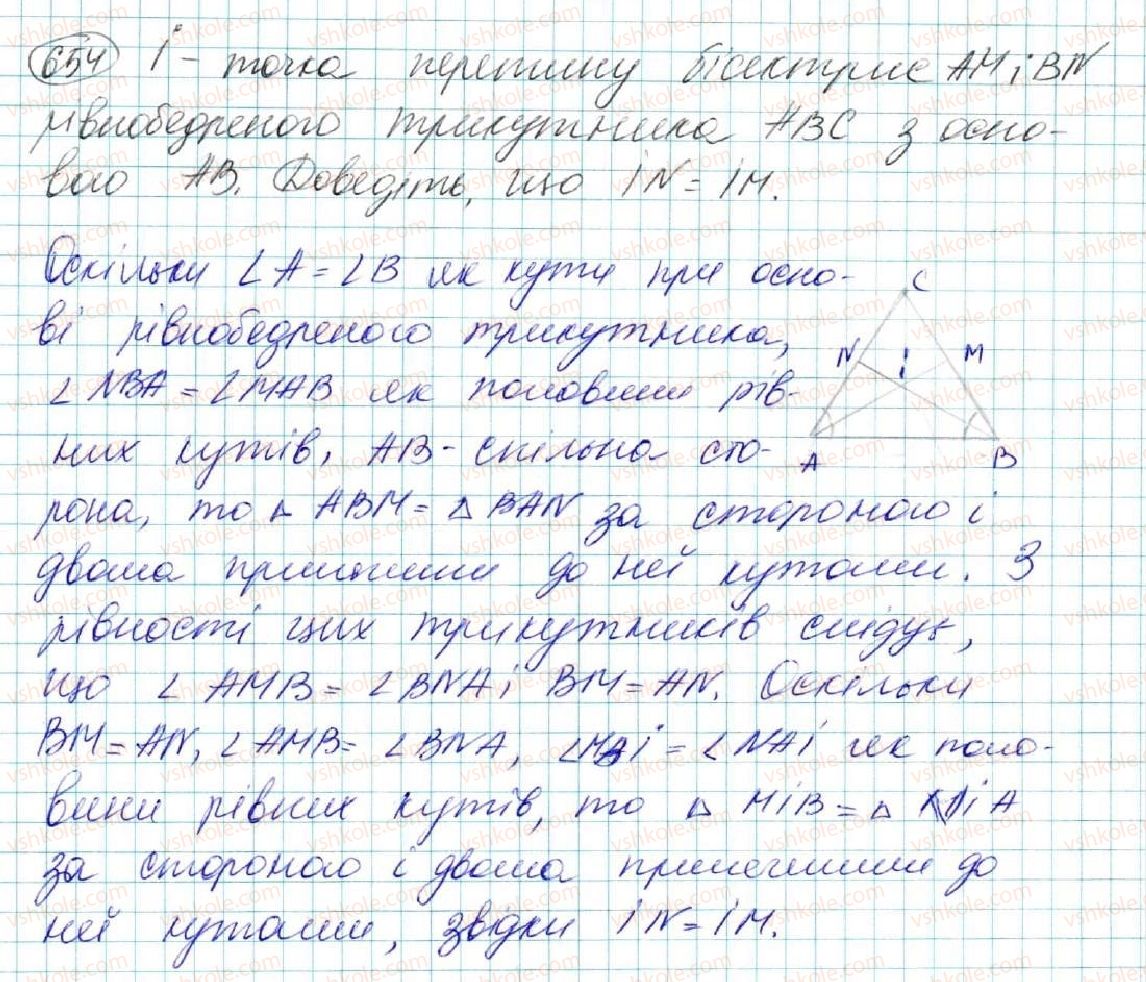 654 І - точка перетину бісектрис AM і BN
рівнобедреного трикутника ABC з осно-
вою AB. Доведіть, що IN = IM.
Оскільки ∠A = ∠B як кути при осно-
ві рівнобедреного трикутника,
∠NBA = ∠MAB як половини рів-
них кутів, AB - спільна сто-
рона, то △ ABM = △ BAN за стороною і
двома прилеглими до неї кутами. З
рівності цих трикутників слідує,
що ∠ AMB = ∠ BNA і BM = AN. Оскільки
BM = AN, ∠ AMB = ∠ BNA, ∠MBI = ∠ NAI як поло-
вини рівних кутів, то △ MIB = △ NIA
за стороною і двома прилеглими до
неї кутами, звідки IN = IM.
C
N I M
A B
vshkole.com